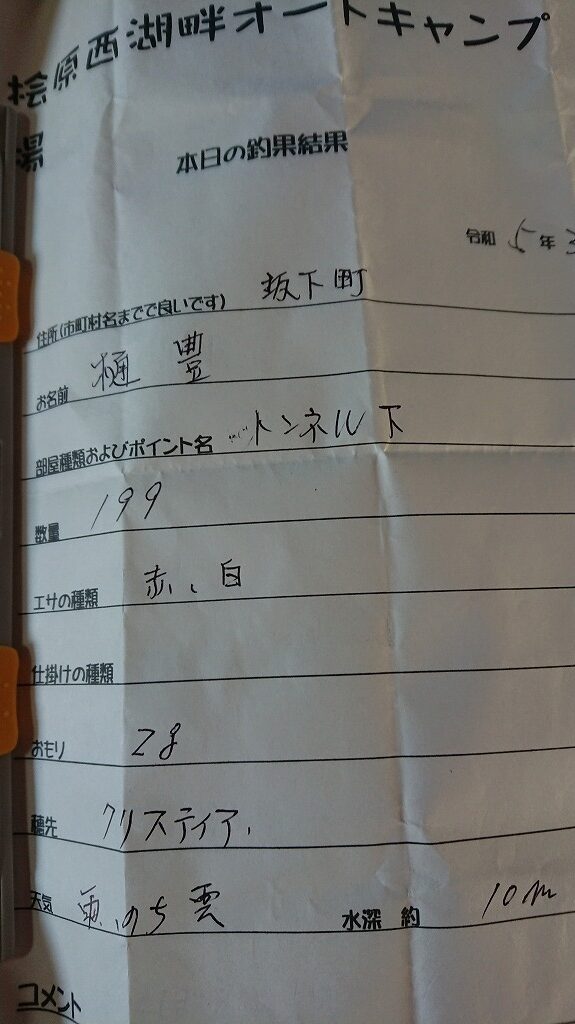 桧原西湖畔オートキャンプ
場
本日の釣果結果
令和 5 年 3
住所(市町村名までで良いです) 坂下町
お名前 樋 豊
部屋種類およびポイント名 トンネル下
数量 199
エサの種類 赤、白
仕掛けの種類
おもり 2g
穂先 クリスティア.
天気 雨、のち雲 水深 約 10m
コメント